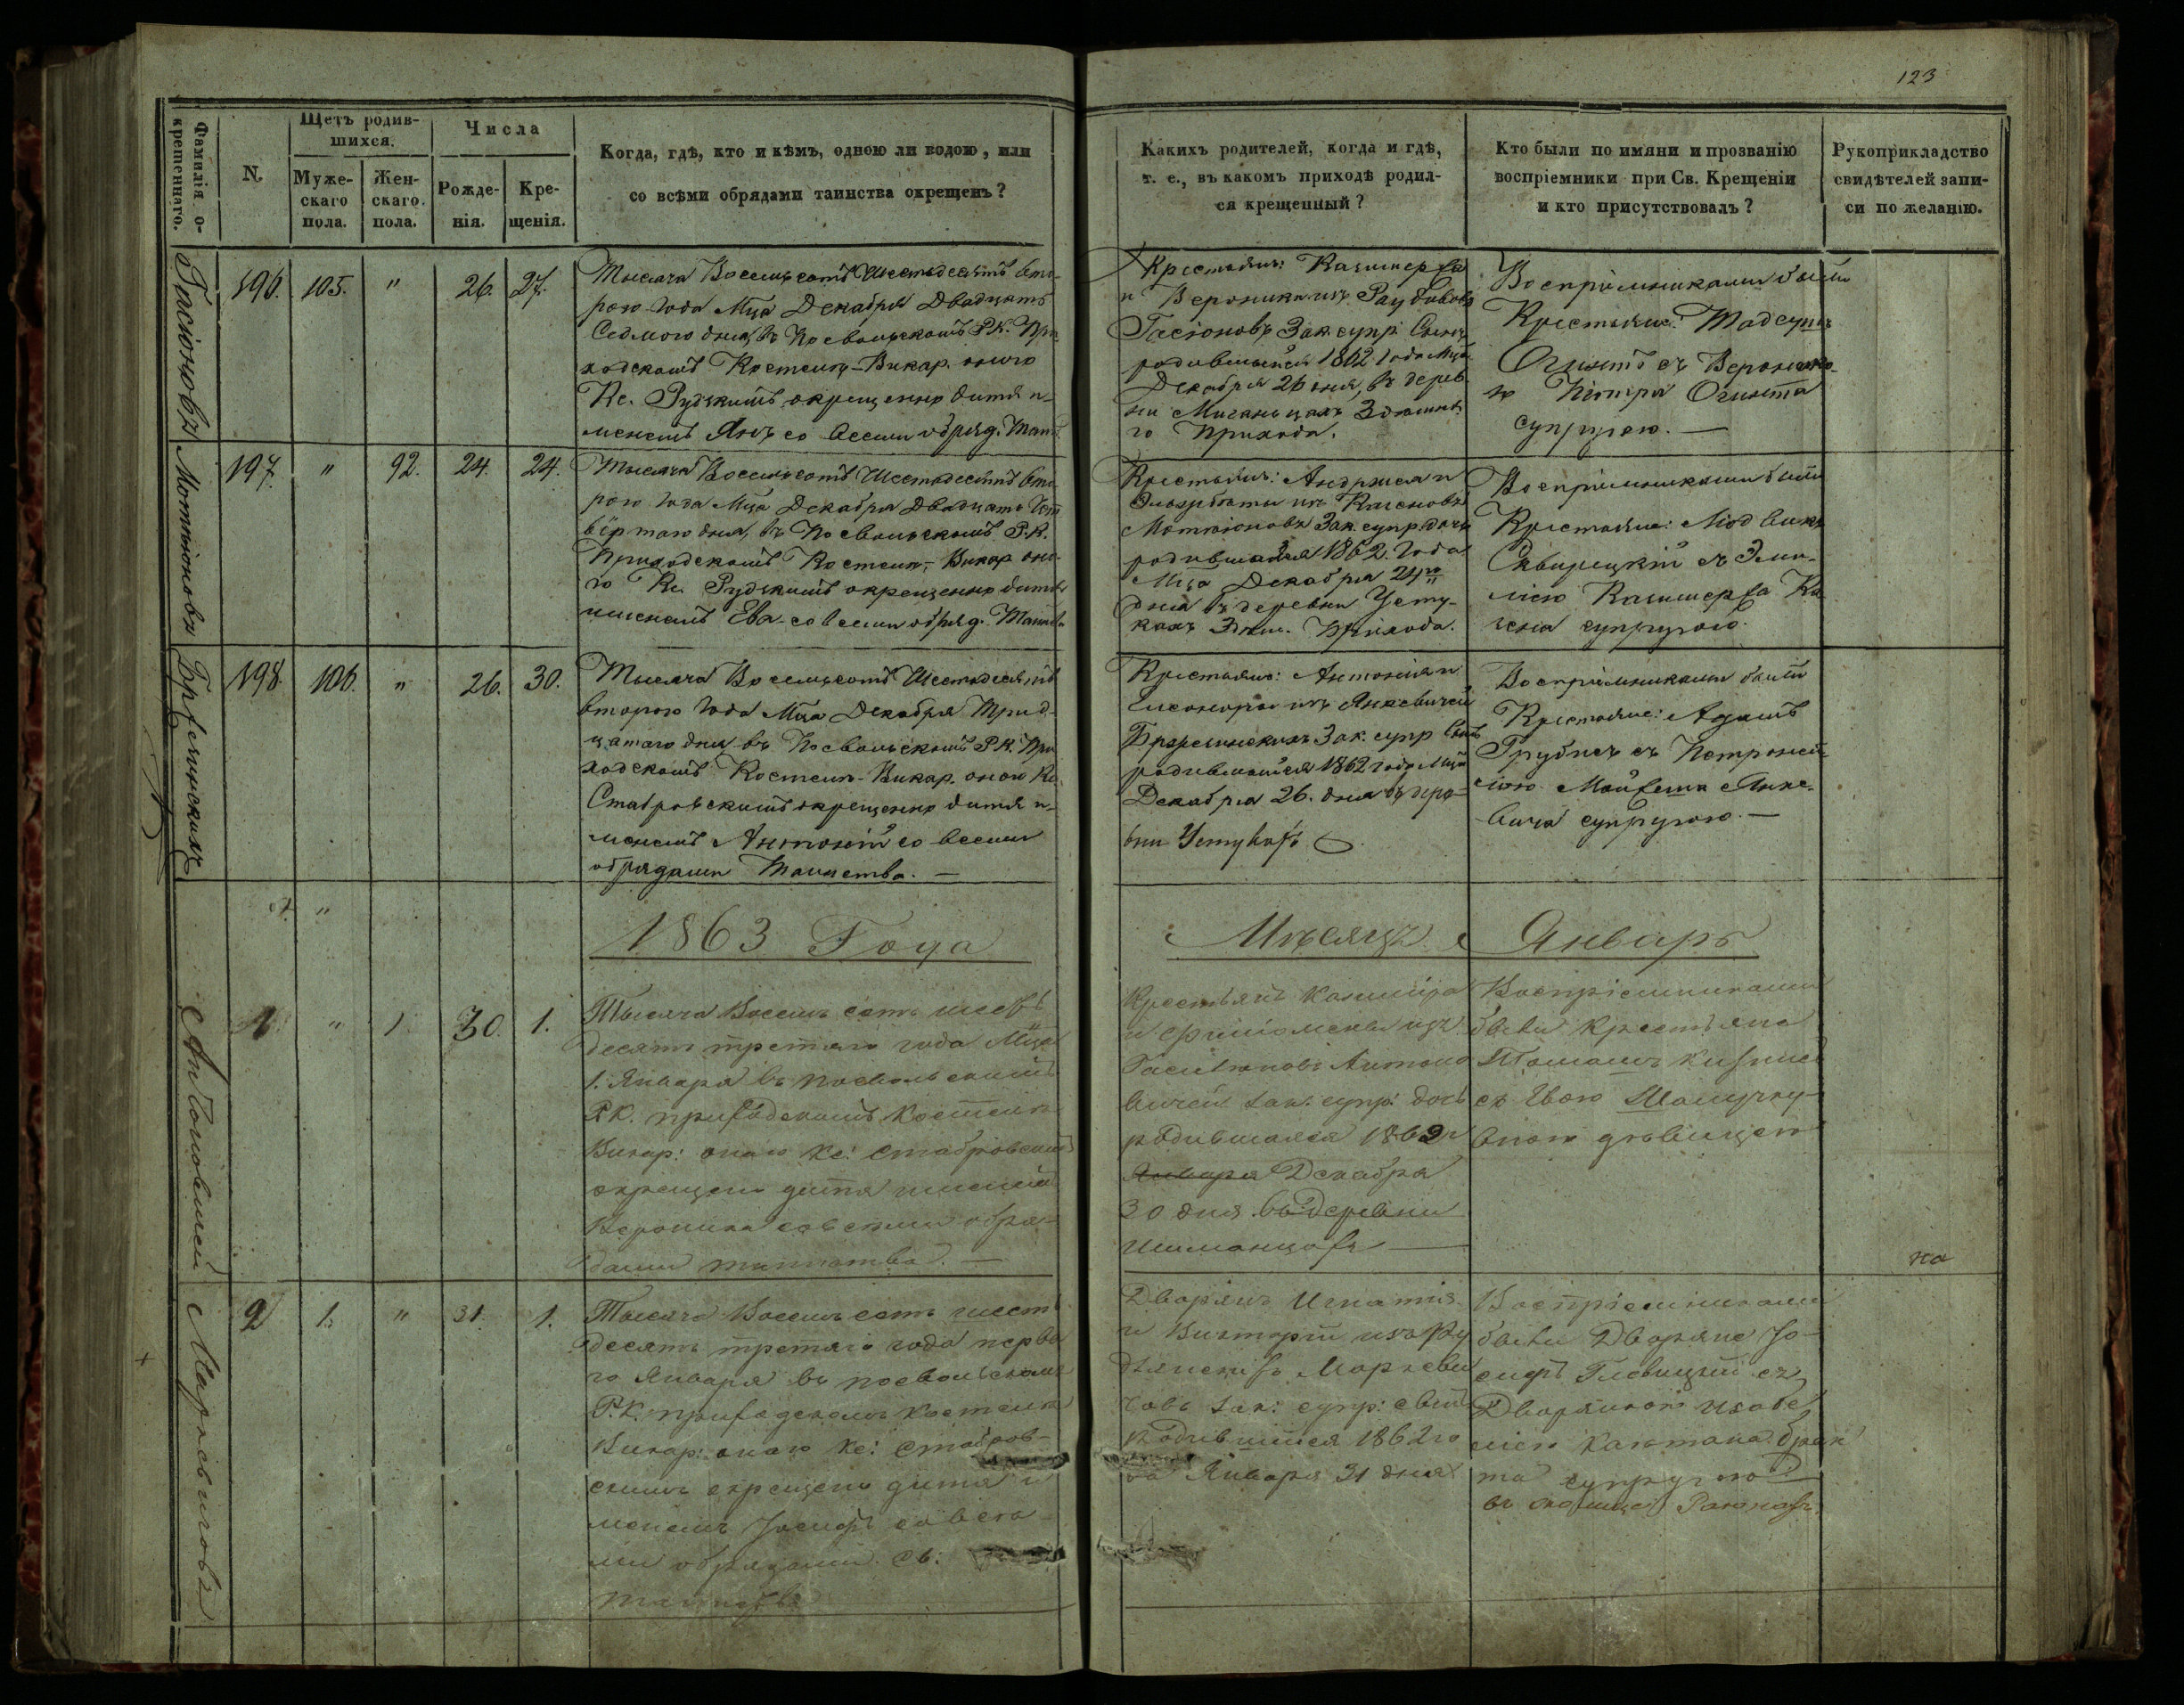 123
Фамилія о-
крещеннаго.
N.
Щетъ родив-
шихся.
Муже-
скаго
пола.
Жен-
скаго
пола.
Числа
Рожде-
нія.
Кре-
щенія.
Когда, гдѣ, кто и кѣмъ, одною ли водою, или
со всѣми обрядами таинства окрещенъ?
Какихъ родителей, когда и гдѣ,
т. е., въ какомъ приходѣ родил-
ся крещенный?
Кто были по имяни и прозванію
воспріемники при Св. Крещеніи
и кто присутствовалъ?
Рукоприкладство
свидѣтелей запи-
си по желанію.
Гасюновъ
196. 105. " 26. 27.
Тысяча Восемьсотъ Шестьдесятъ вто-
рого Года Мца Декабря Двадцать
Седмого дня, въ Посвольскомъ Р.К. При-
ходскомъ Костелѣ Викар. оного
Кс. Рудзкимъ окрещенно дитя и-
менемъ Янъ со всеми обряд. Таин.
Крестьянъ: Казимержа
и Вероники изъ
Гасюновъ Зак. супр. Сынъ
родившыйся 1862 Года Мца
Декабря 26 дня, въ дерев
ни
го Прихода.
Воспріемниками были
Крестьяне: Тадеушъ
Огинтъ съ Вероник-
ю Піотра Огинта
супругою. —
Мотюновъ
197. " 92. 24. 24.
Тысяча Восемьсотъ Шестьдесятъ вто-
рого Года Мца Декабря Двадцать Чет
вёртого дня, въ Посвольскомъ Р.К.
Приходскомъ Костелѣ Викар оно-
го Кс. Рудзкимъ окрещенно дитя
именемъ Ева со всеми обряд. Таинства
Крестьянъ: Анджея и
Эльзбеты изъ
Мотюновъ Зак. супр. дочь
родившаяся 1862. Года
Мца Декабря 24го
дня въ деревни Усту-
кахъ Здѣш. Прихода.
Воспріемниками были
Крестьяне: Людвикъ
Сквирецкій съ Эми-
ліею Казимержа
супругою.
Бржезинскихъ
198. 106. " 26. 30.
Тысяча Восемьсотъ Шестьдесятъ
второго Года Мца Декабря Трид-
цатаго дня въ Посвольскомъ Р.К. При
ходскомъ Костелѣ Викар. оного Кс.
Ставровскимъ окрещенно дитя и-
менемъ Антоній со всеми
обрядами Таинства. —
Крестьянъ: Антонія и
Элеоноры изъ Янкевичей
Бржезинскихъ Зак. супр Сынъ
родившыйся 1862 года Мца
Декабря 26. дня въ дере-
вни Устукахъ
Воспріемниками были
Крестьяне: Адамъ
Грубисъ съ Петронел-
лею Мойжеша Янке-
вича супругою. —
1863 Года
Мѣсяцъ Январь
Антоновичей
1. " 1. 30. 1.
Тысяча Восемь сотъ шесть
десятъ третяго года Мца
1. Января въ посвольскомъ
Р.К. приходскомъ костелѣ
Викар: оного Кс: Ставровскимъ
окрещено дитя именемъ
Вероника со всеми обря-
дами таинства. —
Крестьянъ Казиміра
и Филомены изъ
Гасюновъ Антоно
вичей зак. супр: дочь
родившаяся 1862 г
Января Декабря
30 дня въ деревни
Воспріемниками
были Крестьяне
Томашъ
съ Евою
вною дѣвицею
Маркевичовъ
2 1. " 31. 1.
Тысяча Восемь сотъ шесть
десятъ третяго года перва
го Января въ посвольскомъ
Р.К. приходскомъ костелѣ
Викар: оного Кс: Ставров-
скимъ окрещено дитя и
менемъ Іосифъ со всѣ
ми обрядами Св:
таинства
Дворянъ Игнатія
и Викторіи изъ Ру
дзянскихъ Маркеви
човъ зак: супр: сынъ
родившыйся 1862 го
Января 31 дня
Воспріемниками
были Дворяне Іо-
сифъ съ
Дворянкою Изабе
ліею Каетана
та супругою
въ
на